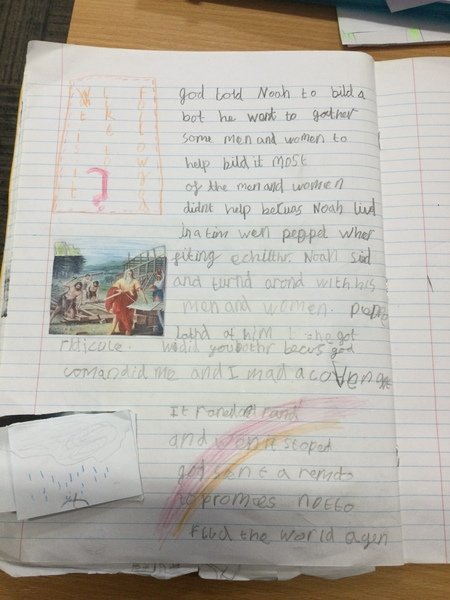 god told Noah to bild a
bot he want to gother
some men and women to
help bild it most
of the men and women
didnt help becuas Noah livd
in a tim wen peppel wher
fiting echuthr. Noah sid
and turnd arond with his
men and women. peple
lathd at him he got
ridicule. wi did you bothr becus god
comandid me and I mad a covenant
It rand and rand
and wen it stoped
god sent a
to promes not to
flud the world agen